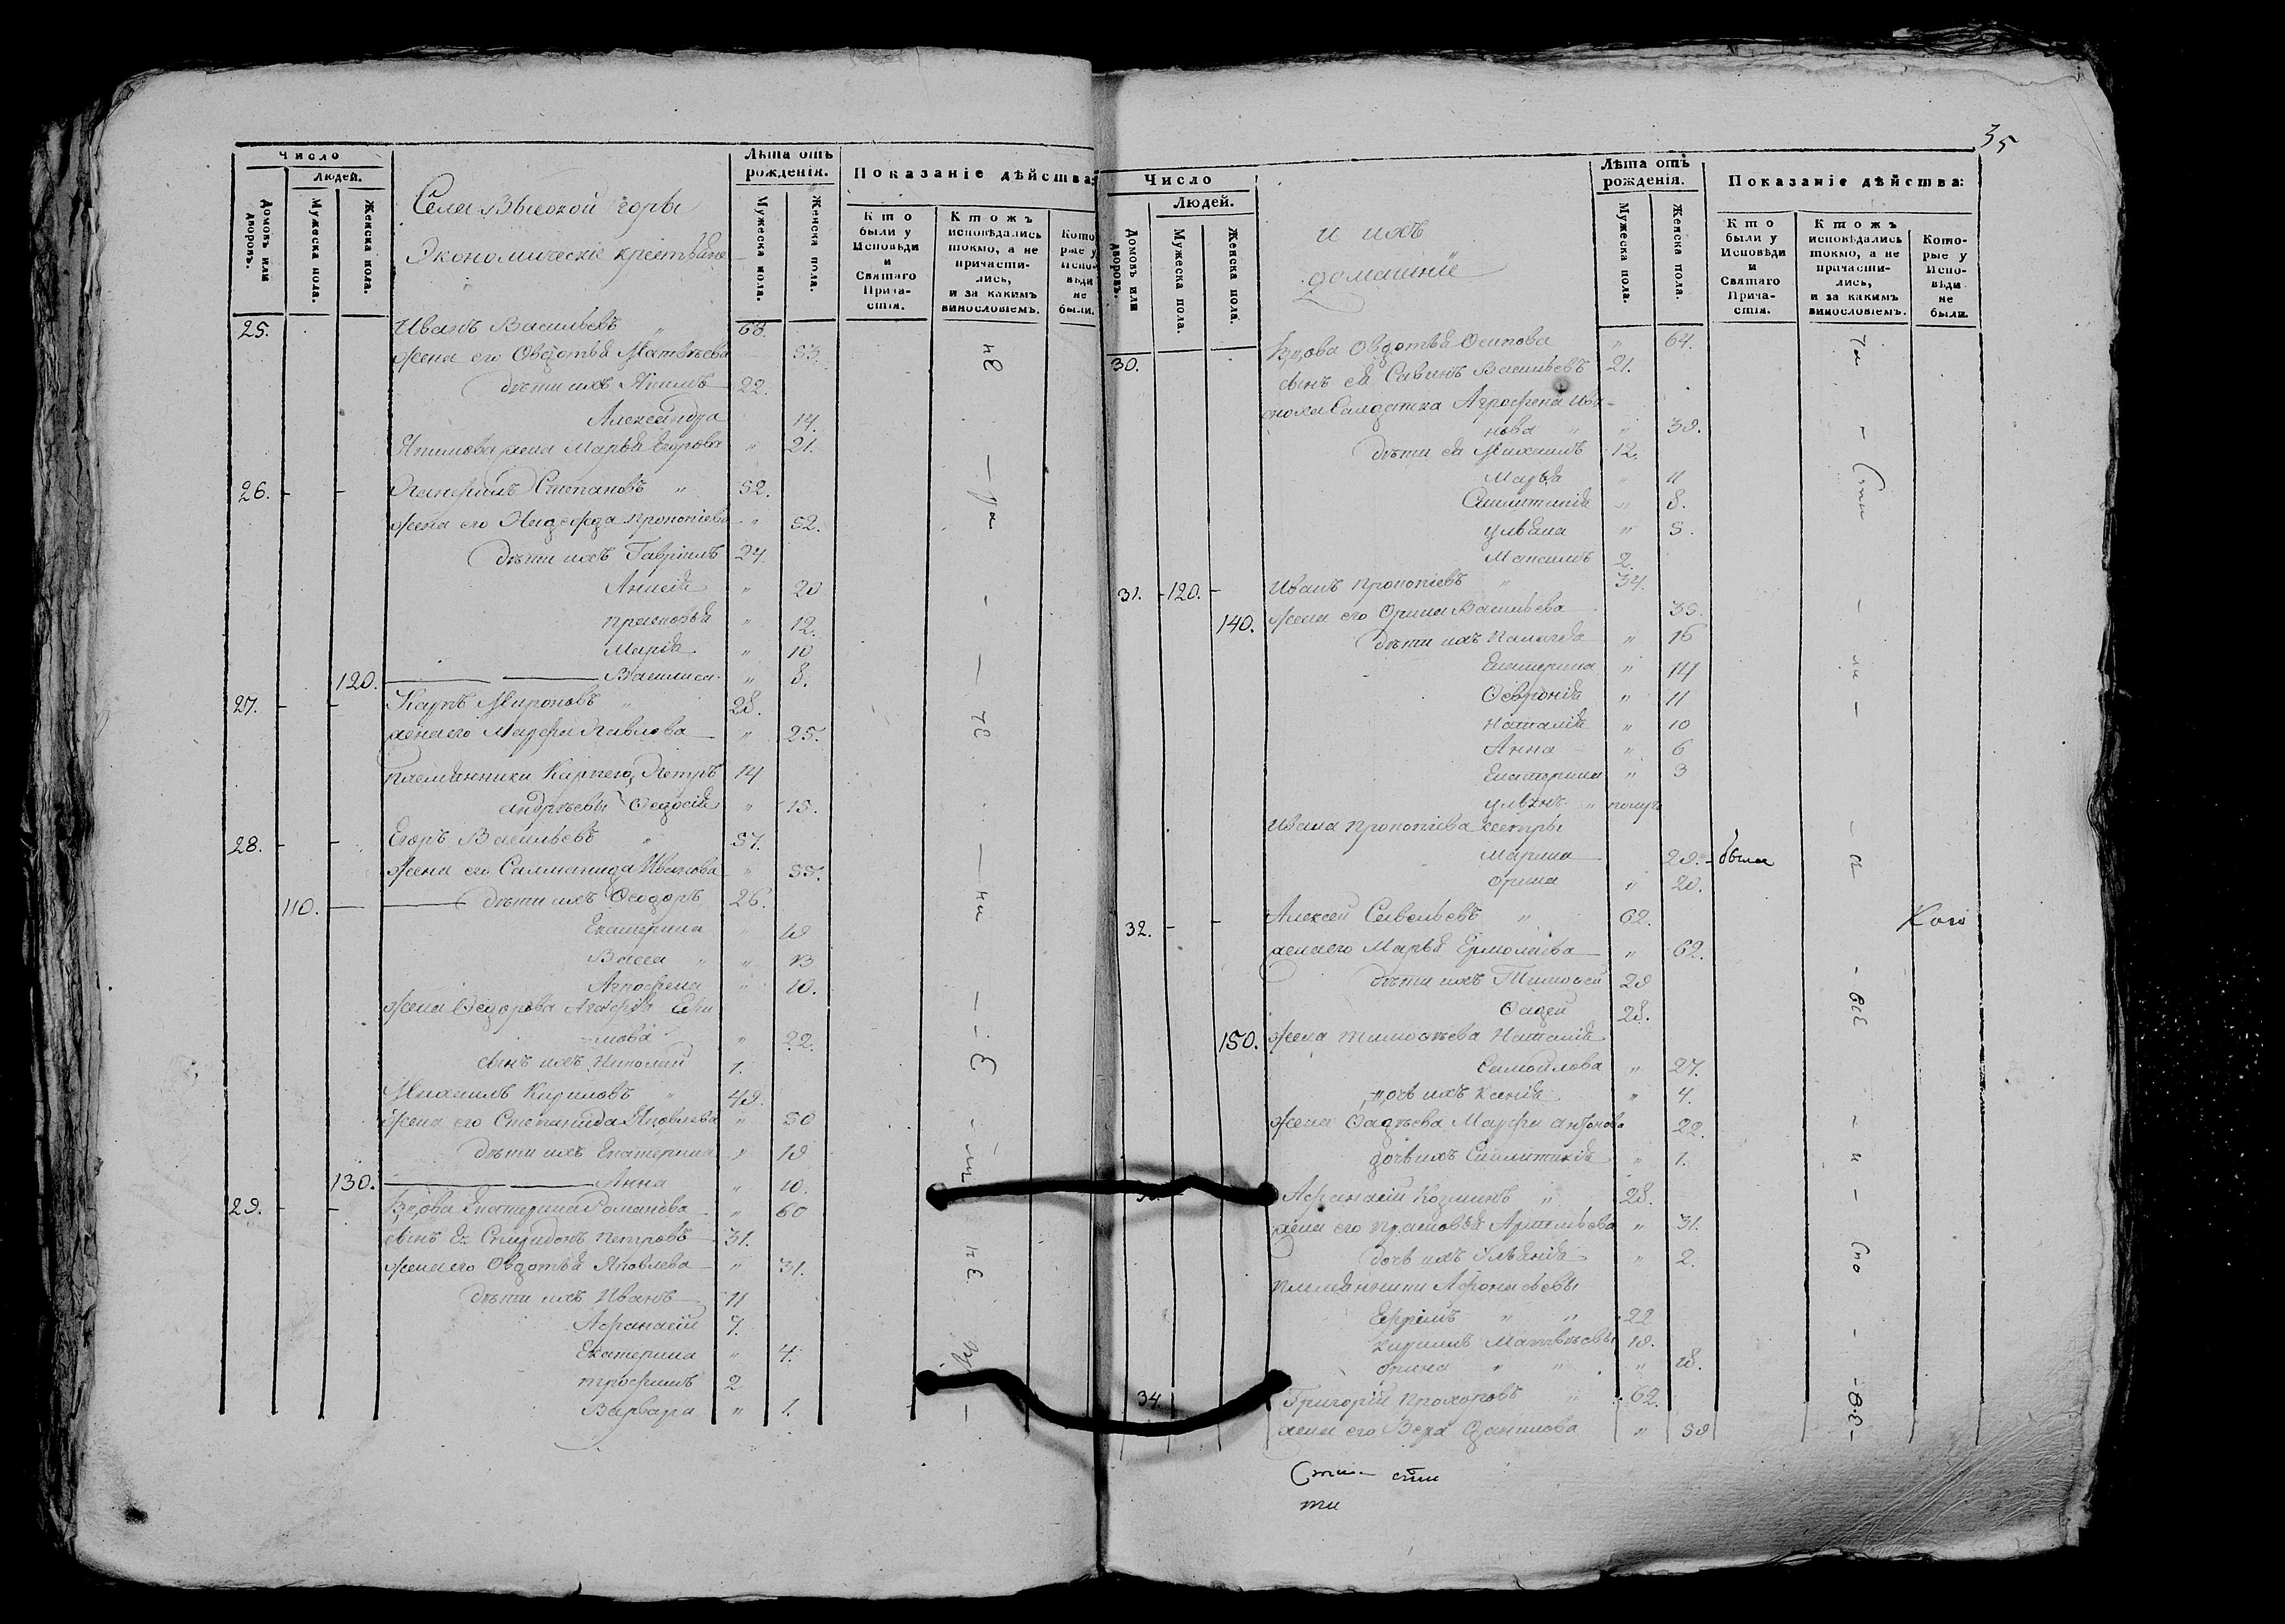 35
Число
Людей.
Домовъ или дворовъ.
Мужеска пола.
Женска пола.
Села Высокой горы
Экономическіе крестьяне
Лѣта отъ рожденія.
Мужеска пола.
Женска пола.
Показаніе дѣйства:
Кто были у Исповѣди и Святаго Причастія.
Ктожъ исповѣдались токмо, а не причастились, и за какимъ винословіемъ.
Которые у Исповѣди не были.
25. Иванъ Васильевъ " 68.
Жена его Овдотья Матвѣева 53.
дѣти ихъ Якимъ 22.
Александра 14.
Якимова жена Марья Егорова " 21.
26. - - Степановъ " 52.
Жена его Прокопіева " 52.
дѣти ихъ Гавріилъ 24.
Анисія " 20
Прасковья " 12.
Марія " 10
120. Василиса " 8.
27. - - Карпъ Мироновъ " 28.
жена его Марфа Павлова " 25.
племянники Карпего, Петръ 14
андрѣевы Ѳедосія " 15.
28. - - Егоръ Васильевъ " 57.
Жена его Иванова " 55.
110. дѣти ихъ Ѳеодоръ 26.
Екатерина " 19
Васса " " 13
Агрофена " 10.
Жена Ѳедорова
мова " 22.
сынъ ихъ Николай 1.
Михаилъ Кириловъ " 49.
Жена его Степанида Яковлева " 50
дѣти ихъ Екатерина " 19
130. Анна " 10.
29. - - Вдова Екатерина Романова " 60
сынъ ея Спиридонъ Петровъ 31.
Жена его Овдотья Яковлева " 31.
дѣти ихъ Иванъ 11
Афанасій 7.
Екатерина " 4.
Трофимъ 2
Варвара " 1.
Число
Людей.
Домовъ или дворовъ.
Мужеска пола.
Женска пола.
и ихъ
домашніе
Лѣта отъ рожденія.
Мужеска пола.
Женска пола.
Показаніе дѣйства:
Кто были у Исповѣди и Святаго Причастія.
Ктожъ исповѣдались токмо, а не причастились, и за какимъ винословіемъ.
Которые у Исповѣди не были.
30. Вдова Овдотья Осипова " 64.
сынъ ея Савинъ Васильевъ 21.
сноха Солдатка Агрофена Ива-
нова " " 39.
дѣти ея Михаилъ 12.
Марья " 11
" 8.
Ульяна " 5.
Максимъ 2.
31. - 120. - Иванъ Прокопіевъ " 34.
140. Жена его Орина Васильева 35.
дѣти ихъ " 16
Екатерина " 14
Ѳевронія " 11
Наталія " 10
Анна " 6
Екатерина " 3
"
Ивана Прокопіева сестры
Марина 29. -
Орина " 20.
32. - - Алексей Савельевъ " 62.
жена его Марья Ермолаева " 62.
дѣти ихъ Тимоѳей 29
Ѳадей 28.
150. Жена Тимоѳѣева Наталія
Самойлова " 27.
дочь ихъ Ксенія " 4.
Жена Ѳадѣева Марфа Антонова 22.
дочь ихъ " 1.
Афанасій Козминъ " 28.
жена его Прасковья Артемьева " 31.
дочь ихъ Ульянія " 2.
племянники Афонасьевы
Ефремъ " " 22
Кирилъ Матвѣевы 19.
Орина " " " 18.
34. Григорій Прохоровъ " 62.
жена его Вера Данилова " 59